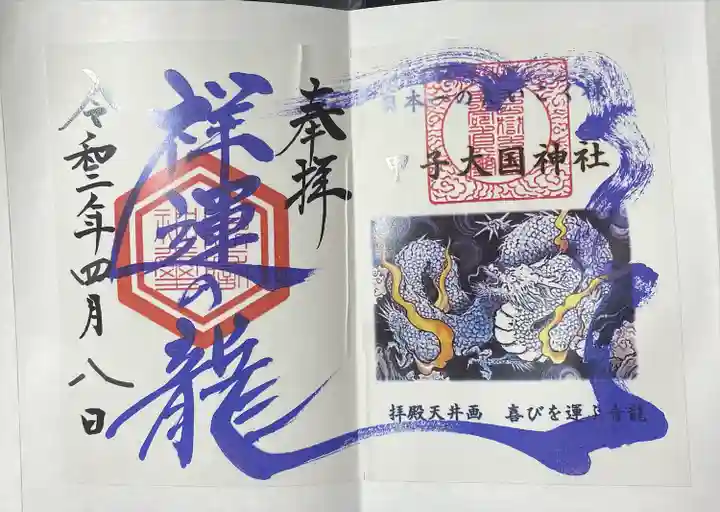 日本一の大黒様
甲子大国神社
拝殿天井画 喜びを運ぶ青龍
奉拝
祥運の龍
令和二年四月八日